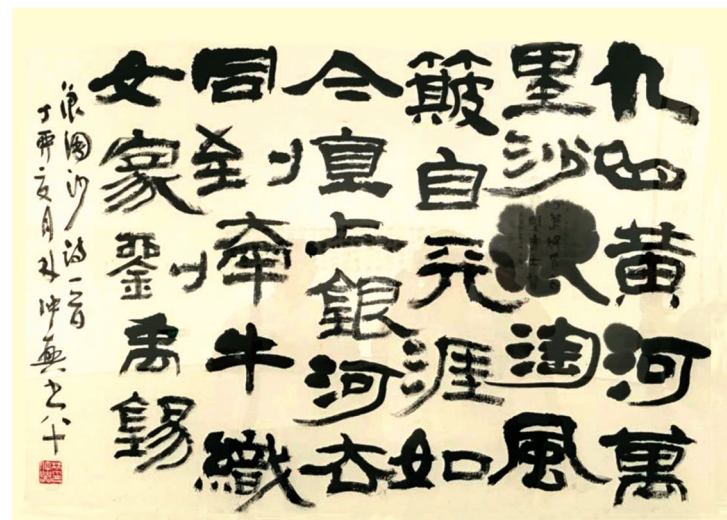 九曲黄河萬
里沙浪淘風
簸自天涯如
今直上銀河去
同到牽牛織
女家劉禹錫
浪淘沙詩一首
丁酉夏月林仲興書八十